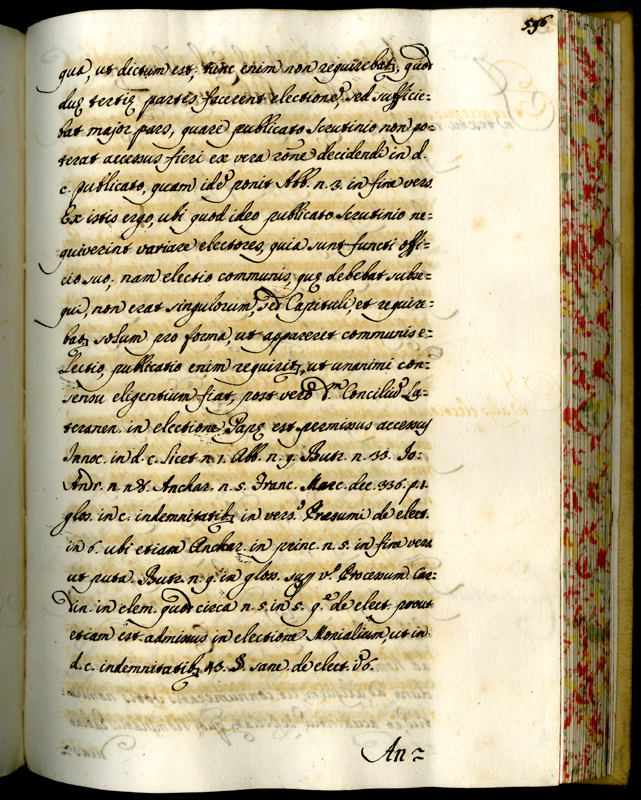 596
qua, ut dictum est, tunc enim non requirebatȝ, quod
duę tertię partis facerent electionē, sed sufficie-
bat major pars, quare publicato Scrutinio non po-
terat accessus fieri ex vera rōne decidendi in d.
c. publicato, quam ideo ponit Abb. n. 3. in fine vers.
Ex istis ergo, ubi quod ideo publicato Scrutinio ne-
quiverint variare electores, quia sunt functi offi-
cio suo, nam electio communis, quę debebat subse-
qui, non erat singulorum, sed Capituli, et require-
batȝ solum pro forma, ut appareret communis e-
lectio, publicatio enim requiritȝ, ut unanimi con-
sensu eligentium fiat, post verò Concilium La-
teranen. in electione Papę est permissus accessus
Innoc. in d. c. licet n. 1. Abb. n. 9. Butr. n. 33. Jo:
Andr. n. Anchar. n. 5. Franc. Marc. dec. 336. p. 1.
glos. in c. indemnitatibȝ in vers. Præsumi de elect.
in 6. ubi etiam Anchar. in princ. n. 5. in fine vers.
ut puta Butr. n. 9. in gloss. sup vº Processum Car-
din. in clem. quod circa n. 5. in 5. q. de elect. prout
etiam est admissus in electione Monialium, ut in
d. c. indemnitatibȝ 43. §. sane de elect. 6.
An-